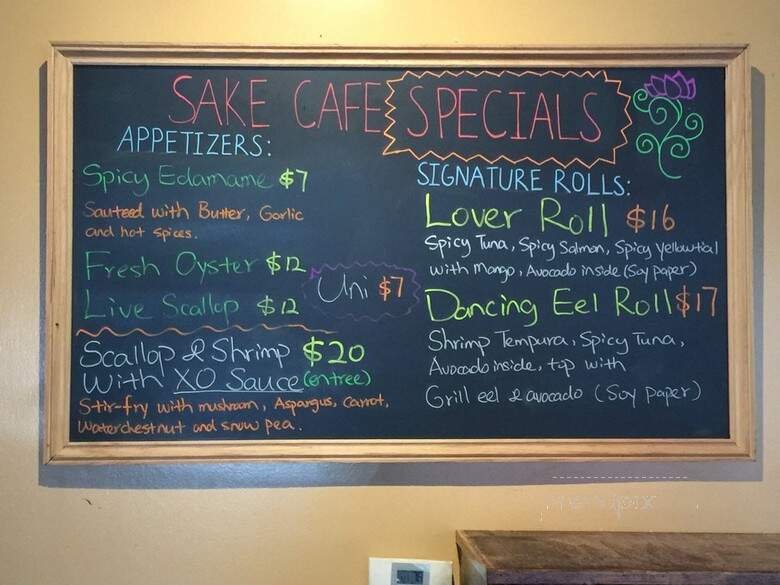 SAKE CAFE SPECIALS
APPETIZERS:
Spicy Edamame $7
Sauteed with Butter, Garlic
and hot spices.
Fresh Oyster $12
Live Scallop $12
Uni $7
Scallop & Shrimp $20
With XO Sauce (entree)
Stir-fry with mushroom, Asparagus, Carrot,
Waterchestnut and snow pea.
SIGNATURE ROLLS:
Lover Roll $16
Spicy Tuna, Spicy Salmon, Spicy Yellowtial
with Mango, Avocado inside (Soy paper)
Dancing Eel Roll $17
Shrimp Tempura, Spicy Tuna,
Avocado inside, top with
Grill eel & avocado (Soy paper)